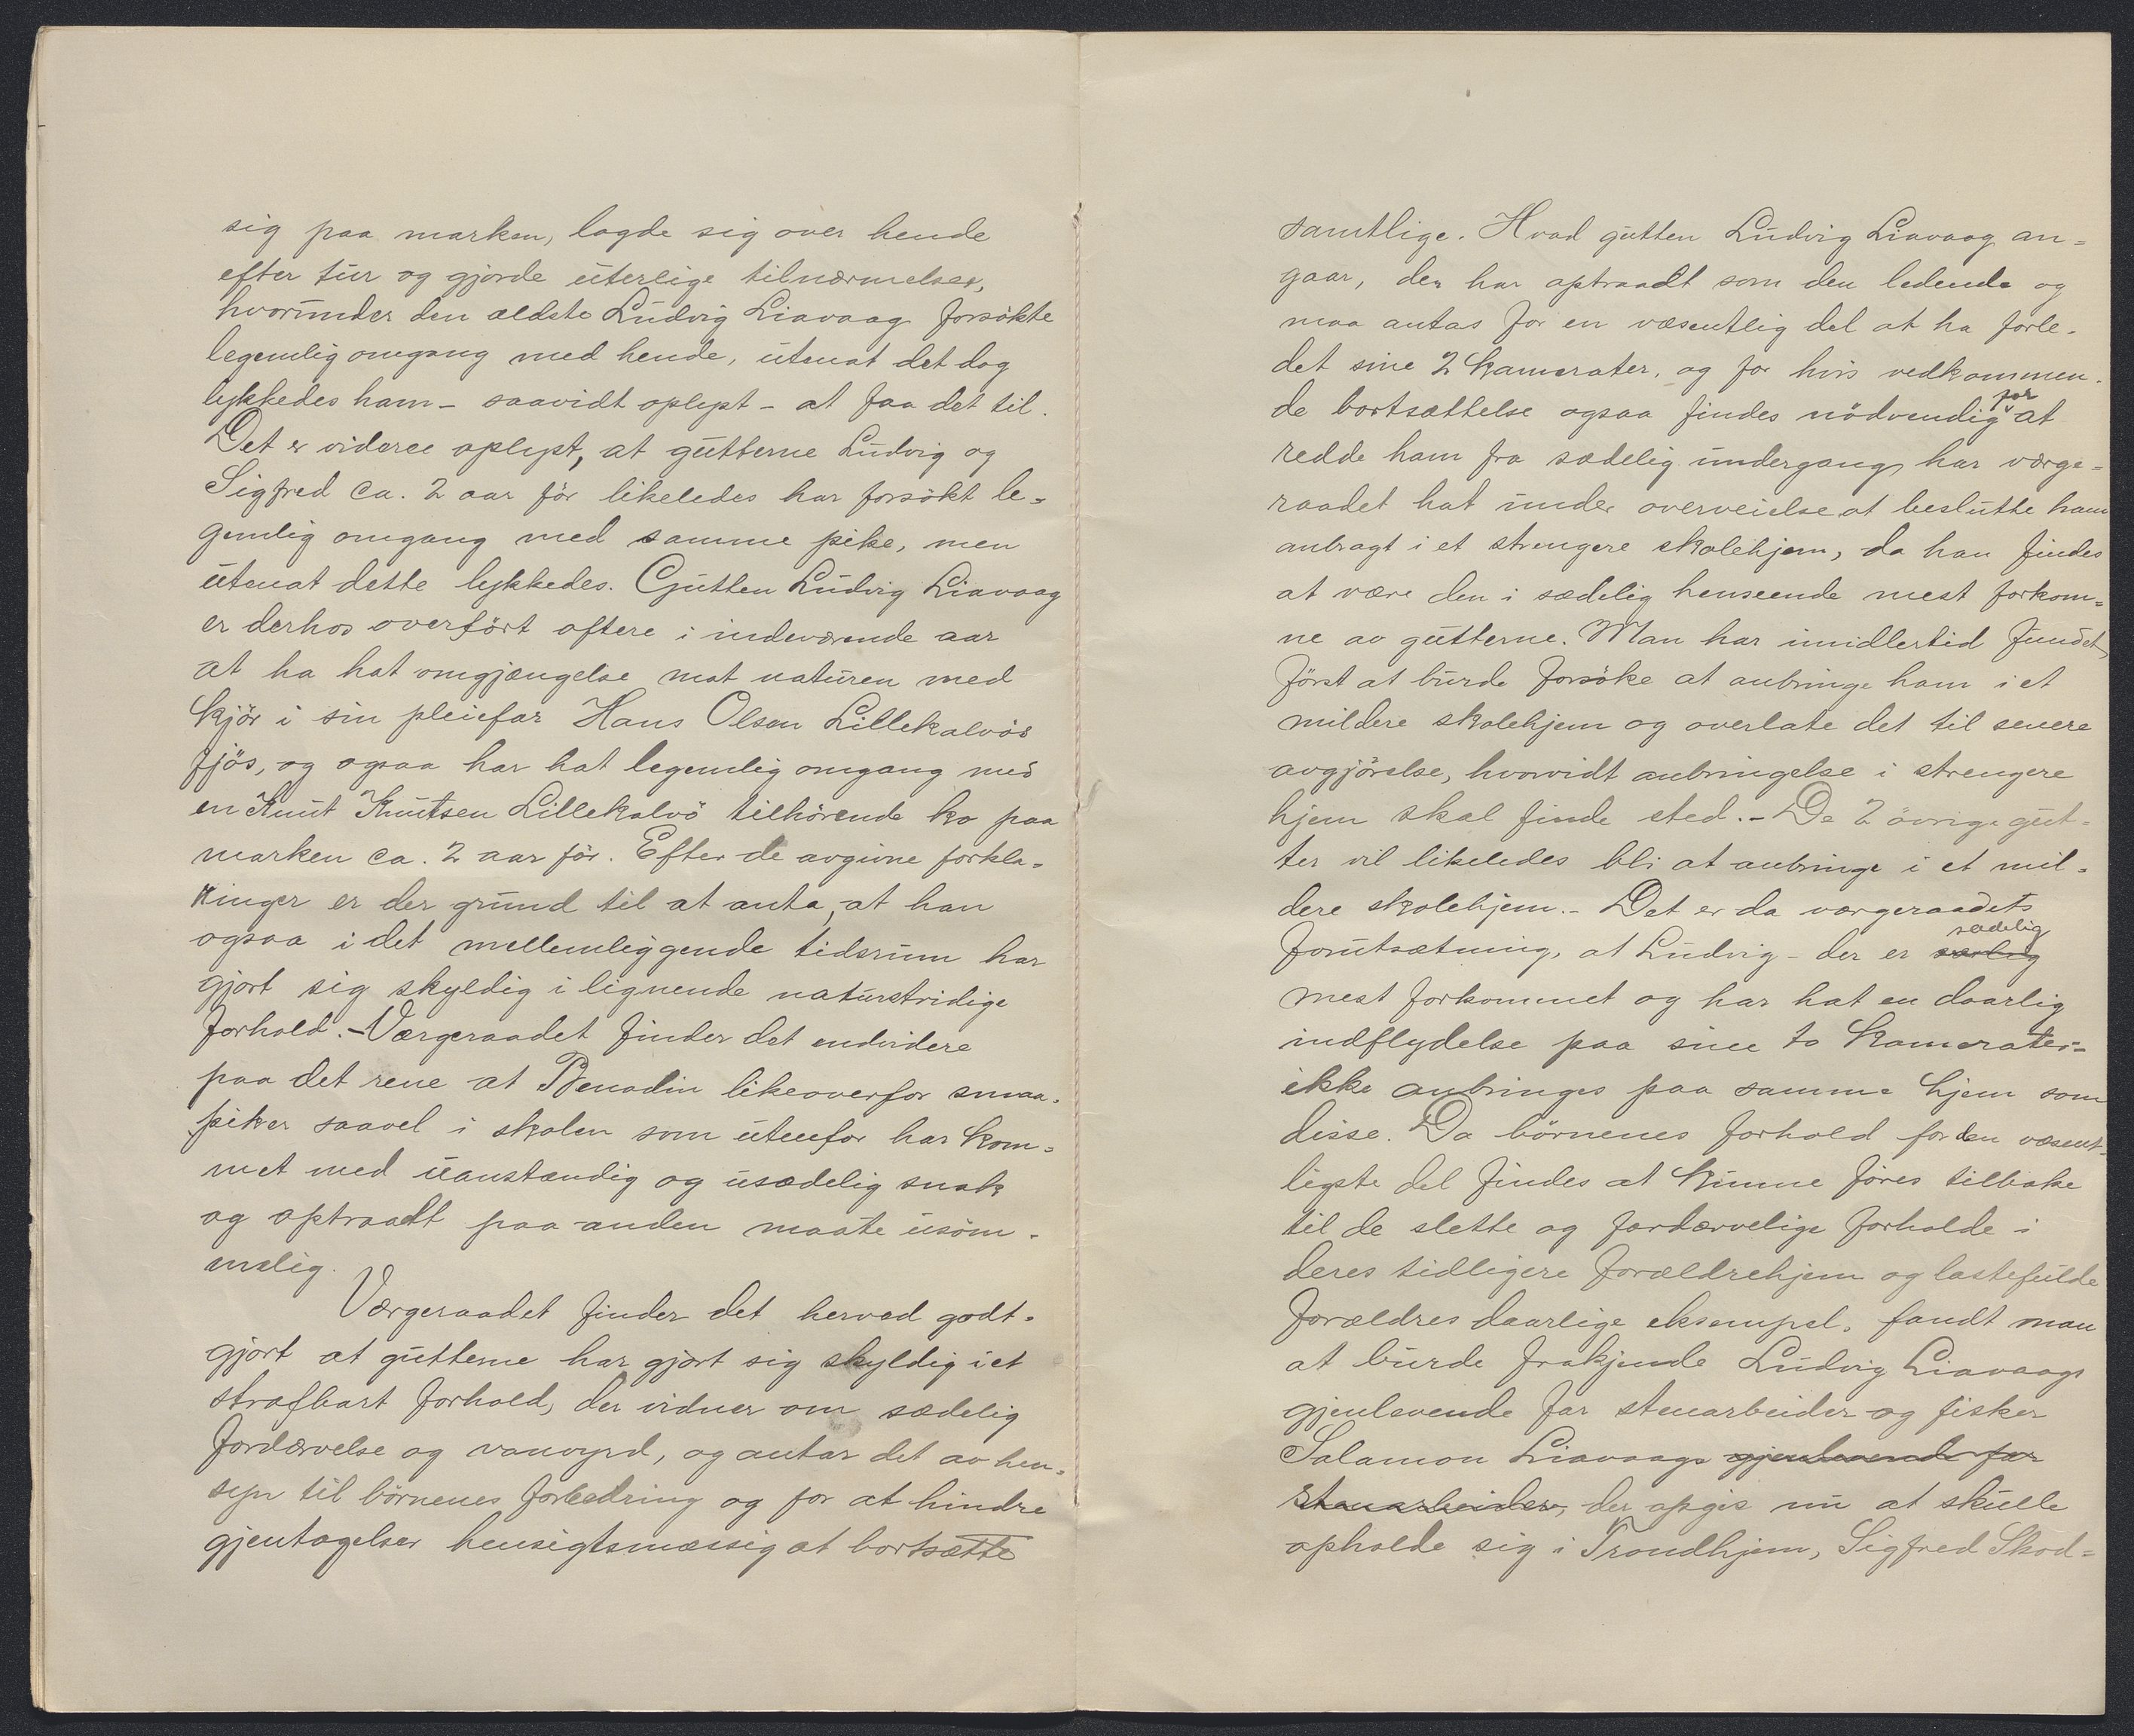 sig paa marken, lagde sig over hende
efter tur og gjorde uterlige tilnærmelser,
hvorunder den ældste Ludvig Liavaag forsökte
legemlig omgang med hende, utenat det dog
lykkedes ham - saavidt oplyst - at faa det til.
Det er videre oplyst, at gutterne Ludvig og
Sigfred ca. 2 aar för likeledes har forsökt le=
gemlig omgang med samme pike, men
utenat dette lykkedes. Gutten Ludvig Liavaag
er derhos overfört oftere i indeværende aar
at ha hat omgjængelse mot naturen med
kjör i sin pleiefar Hans Olsen Lillekalvös
fjös, og ogsaa har hat legemlig omgang med
en Knut Knutsen Lillekalvö tilhörende ko paa
marken ca. 2 aar för. Efter de avgivne forkla=
ringer er der grund til at anta, at han
ogsaa i det mellemliggende tidsrum har
gjort sig skyldig i lignende naturstridige
forhold. - Værgeraadet finder det endvidere
paa det rene at Benadin likeoverfor smaa-
piker saavel i skolen som utenfor har kom=
met med uanstændig og usædelig snak
og optraadt paa anden maate usöm-
melig.
Værgeraadet finder det herved godt-
gjort at gutterne har gjort sig skyldig i et
strafbart forhold, der vidner om sædelig
fordærvelse og vanvyrd, og antar det av hen=
syn til börnenes forbedring og for at hindre
gjentagelser hensigtsmæssig at bortsætte
samtlige. Hvad gutten Ludvig Liavaag an=
gaar, der har optraadt som den ledende og
maa antas for en væsentlig del at ha forle-
det sine 2 kamerater, og for hvis vedkommen-
de bortsættelse ogsaa findes nödvendig for at
redde ham fra sædelig undergang, har værge=
raadet hat under overveielse at beslutte ham
anbragt i et strengere skolehjem, da han findes
at være den i sædelig henseende mest forkom=
ne av gutterne. Man har imidlertid fundet,
först at burde forsöke at anbringe ham i et
mildere skolehjem og overlate det til senere
avgjörelse, hvorvidt anbringelse i strengere
hjem skal finde sted. - De 2 övrige gut=
ter vil likeledes bli at anbringe i et mil-
dere skolehjem. - Det er da værgeraadets
forutsætning, at Ludvig - der er særlig sædelig
mest forkommet og har hat en daarlig
indflydelse paa sine to kamerater=
ikke anbringes paa samme hjem som
disse. Da börnenes forhold for den væsent-
ligste del findes at kunne föres tilbake
til de slette og fordærvelige forholde i
deres tidligere forældrehjem og lastefulde
forældres daarlige eksempel, fandt man
at burde frakjende Ludvig Liavaags
gjenlevende far stenarbeider og fisker
Salamon Liavaags gjenlevende far
stenarbeider, der opgis nu at skulle
opholde sig i Trondhjem, Sigfred Skod=